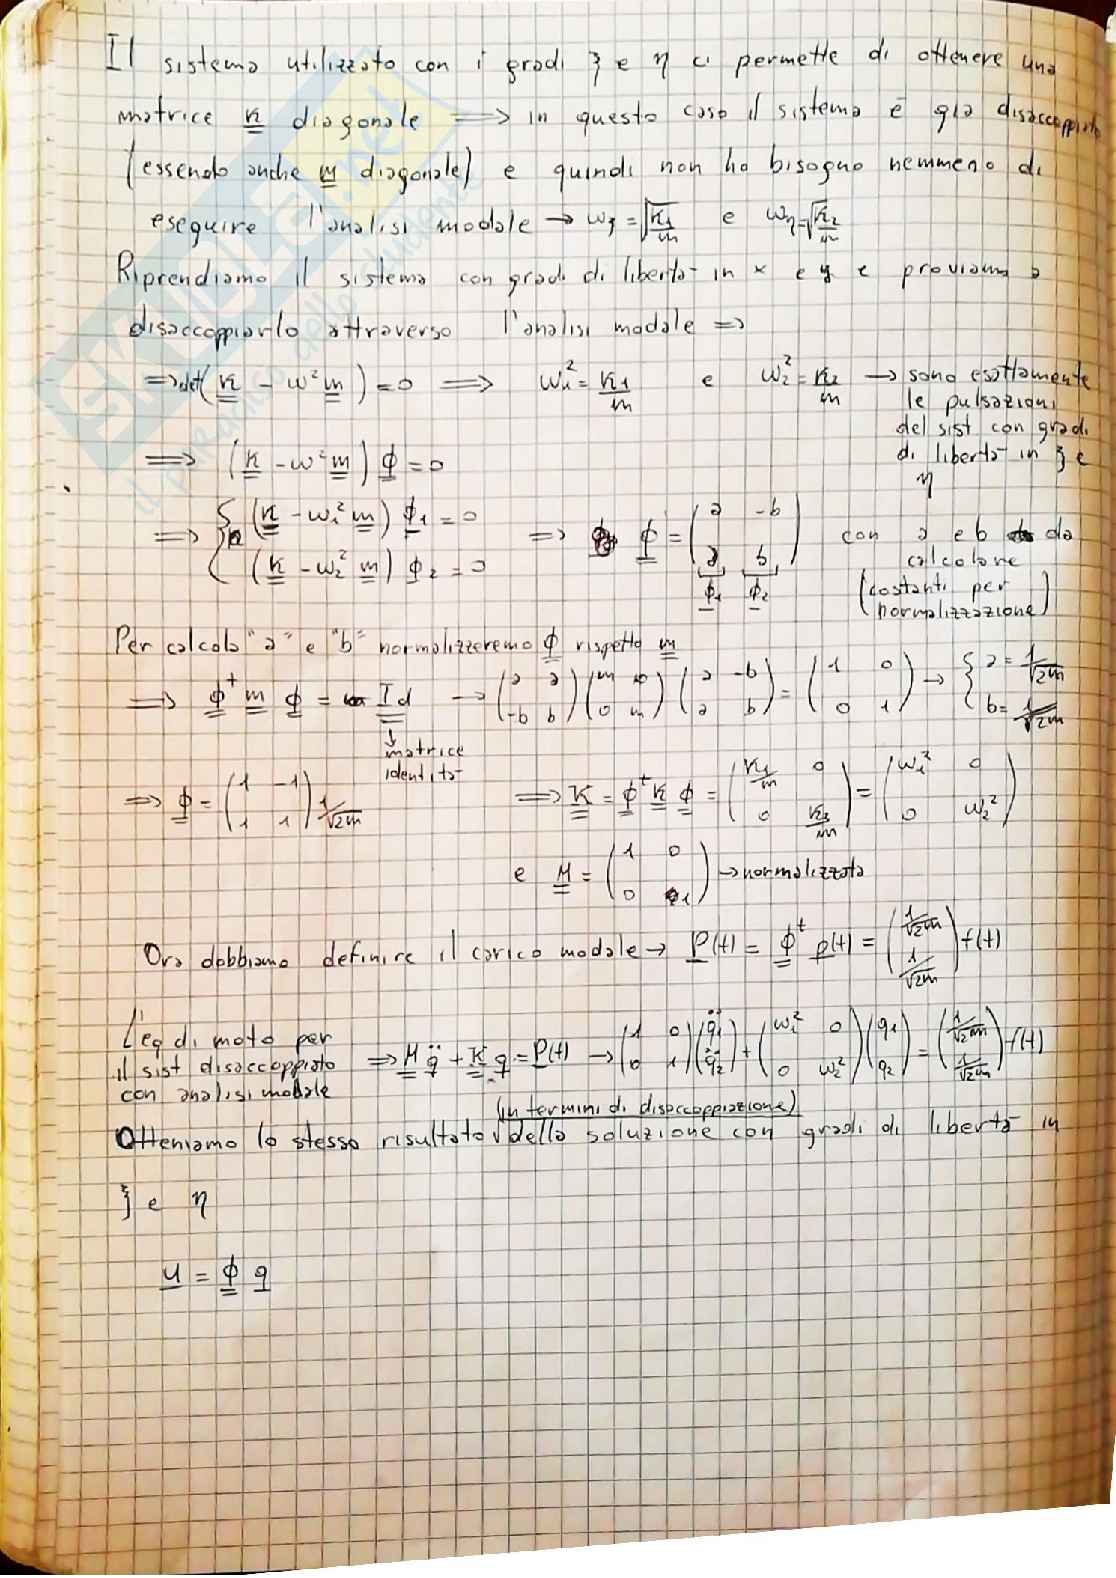 Il sistema utilizzato con i gradi ξ e η ci permette di ottenere una
matrice k diagonale ⟹ in questo caso il sistema è già disaccoppiato
(essendo anche m diagonale) e quindi non ho bisogno nemmeno di
eseguire l'analisi modale → ωξ = √(k1/m) e ωη = √(k2/m)
Riprendiamo il sistema con gradi di libertà in x e y e proviamo a
disaccoppiarlo attraverso l'analisi modale ⟹
⟹ det(k - ω² m) = 0 ⟹ ω1² = k1/m e ω2² = k2/m → sono esattamente
le pulsazioni
del sist con gradi
di libertà in ξ e
η
⟹ (k - ω² m) ϕ = 0
⟹ { (k - ω1² m) ϕ1 = 0
(k - ω2² m) ϕ2 = 0
⟹ ϕ = (a -b
a b)
ϕ1 ϕ2
con a e b da
calcolare
(costanti per
normalizzazione)
Per calcolo "a" e "b" normalizzeremo ϕ rispetto m
⟹ ϕᵗ m ϕ = Id → (a a
-b b) (m 0
0 m) (a -b
a b) = (1 0
0 1) → { a = 1/√2m
b = 1/√2m
↓
matrice
identità
⟹ ϕ = (1 -1
1 1) 1/√2m
⟹ K = ϕᵗ k ϕ = (k1/m 0
0 k2/m) = (ω1² 0
0 ω2²)
e M = (1 0
0 1) → normalizzata
Ora dobbiamo definire il carico modale → P(t) = ϕᵗ p(t) = (1/√2m
1/√2m) f(t)
L'eq di moto per
il sist disaccoppiato
con analisi modale
⟹ M q̈ + K q = P(t) → (1 0
0 1) (q̈1
q̈2) + (ω1² 0
0 ω2²) (q1
q2) = (1/√2m
1/√2m) f(t)
(in termini di disaccoppiazione)
Otteniamo lo stesso risultato della soluzione con gradi di libertà in
ξ e η
u = ϕ q